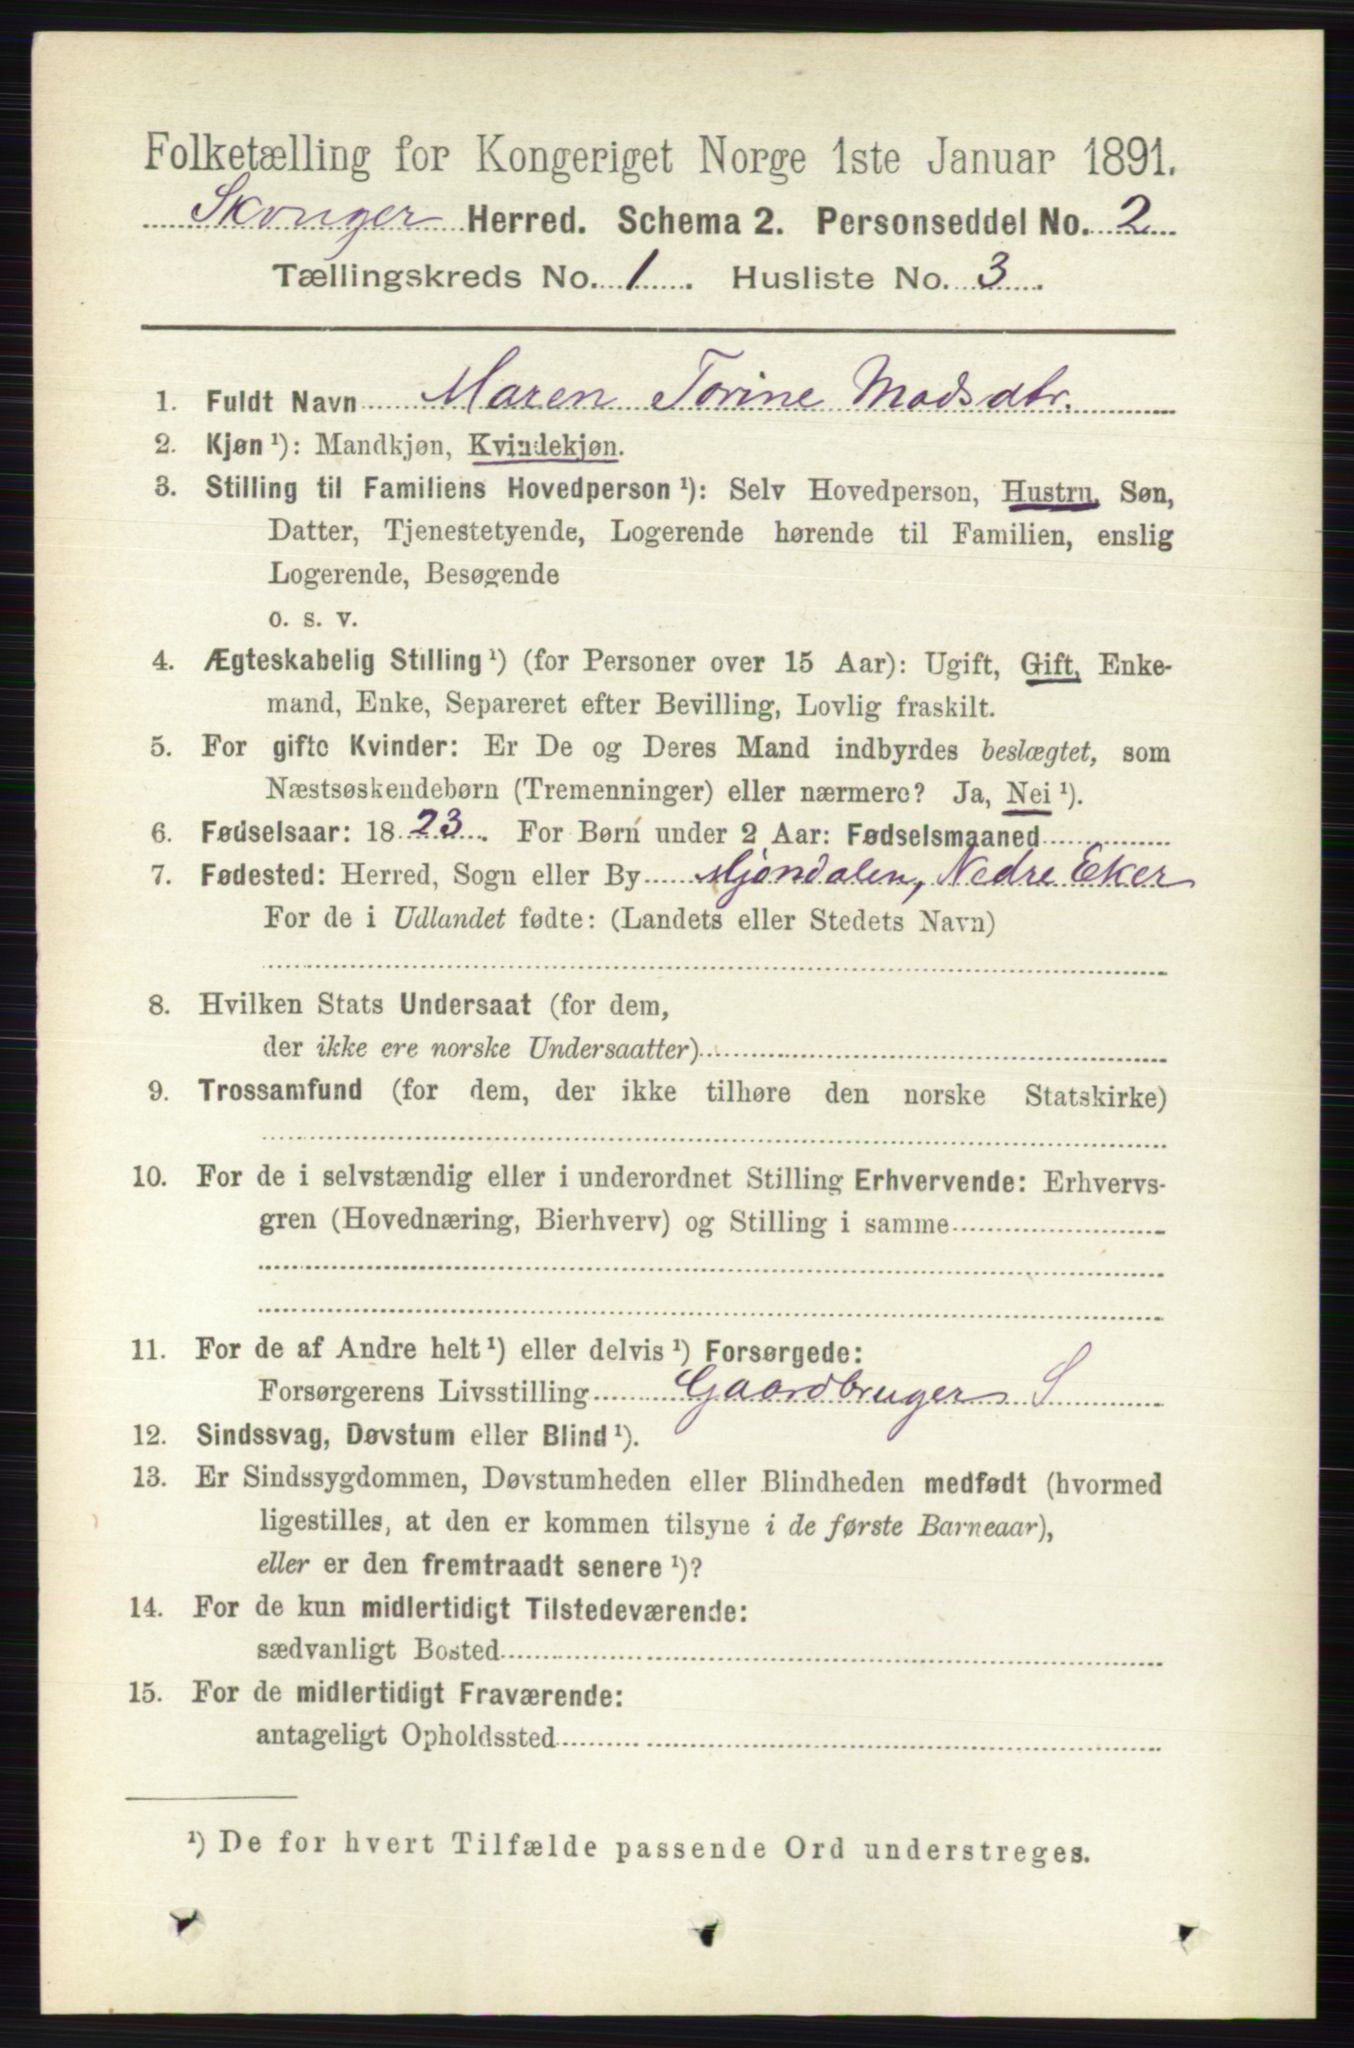 Folketælling for Kongeriget Norge 1ste Januar 1891.
Skouger Herred. Schema 2. Personseddel No. 2
Tællingskreds No. 1. Husliste No. 3.
1. Fuldt Navn Maren Torine Madsdtr.
2. Kjøn ¹): Mandkjøn, Kvindekjøn.
3. Stilling til Familiens Hovedperson ¹): Selv Hovedperson, Hustru, Søn,
Datter, Tjenestetyende, Logerende hørende til Familien, enslig
Logerende, Besøgende
o. s. v.
4. Ægteskabelig Stilling ¹) (for Personer over 15 Aar): Ugift, Gift, Enke-
mand, Enke, Separeret efter Bevilling, Lovlig fraskilt.
5. For gifte Kvinder: Er De og Deres Mand indbyrdes beslægtet, som
Næstsøskendebørn (Tremenninger) eller nærmere? Ja, Nei ¹).
6. Fødselsaar: 1823. For Børn under 2 Aar: Fødselsmaaned
7. Fødested: Herred, Sogn eller By Mjøndalen, Nedre Eker
For de i Udlandet fødte: (Landets eller Stedets Navn)
8. Hvilken Stats Undersaat (for dem,
der ikke ere norske Undersaatter)
9. Trossamfund (for dem, der ikke tilhøre den norske Statskirke)
10. For de i selvstændig eller i underordnet Stilling Erhvervende: Erhvervs-
gren (Hovednæring, Bierhverv) og Stilling i samme
11. For de af Andre helt ¹) eller delvis ¹) Forsørgede:
Forsørgerens Livsstilling Gaardbruger S
12. Sindssvag, Døvstum eller Blind ¹).
13. Er Sindssygdommen, Døvstumheden eller Blindheden medfødt (hvormed
ligestilles, at den er kommen tilsyne i de første Barneaar),
eller er den fremtraadt senere ¹)?
14. For de kun midlertidigt Tilstedeværende:
sædvanligt Bosted
15. For de midlertidigt Fraværende:
antageligt Opholdssted
¹) De for hvert Tilfælde passende Ord understreges.